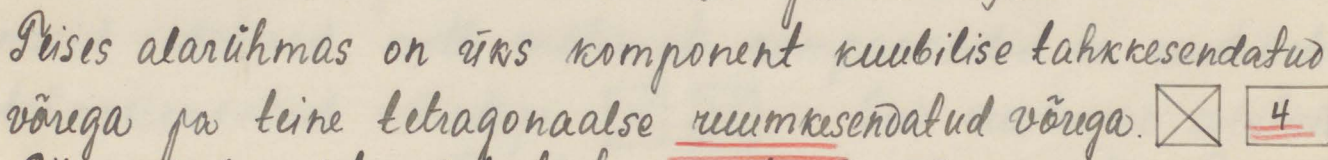 Teises alarühmas on üks komponent kuubilise tahkkesendatud
võrega ja teine tetragonaalse ruumkesendatud võrega. 4